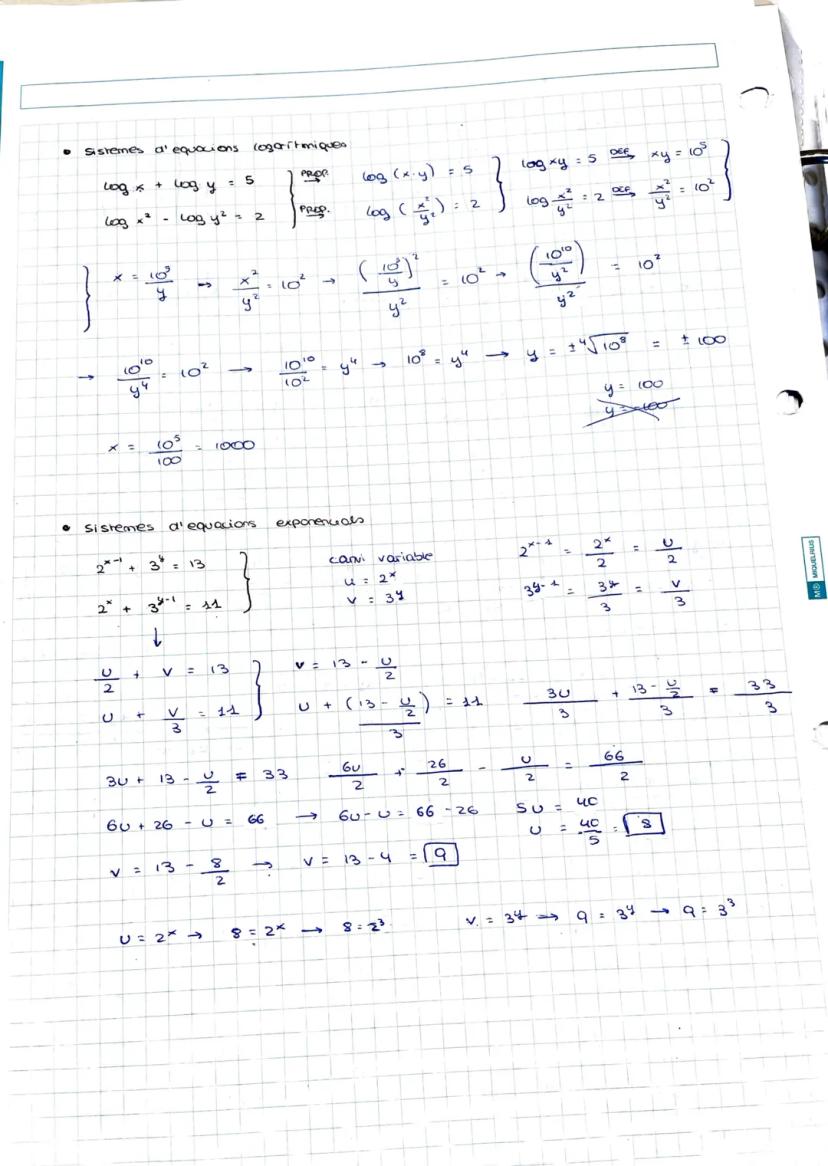 • sistemes d'equacions logarítmiques
log x + log y = 5 } PROP. → log (x·y) = 5 } log xy = 5 DEF → xy = 10⁵ }
log x² - log y² = 2 } PROP. → log (x²/y²) = 2 } log x²/y² = 2 DEF → x²/y² = 10² }
} x = 10⁵/y → x²/y² = 10² → (10⁵/y)²/y² = 10² → (10¹⁰/y²)/y² = 10²
→ 10¹⁰/y⁴ = 10² → 10¹⁰/10² = y⁴ → 10⁸ = y⁴ → y = ±⁴√10⁸ = ± 100
y = 100
y = -100
x = 10⁵/100 = 1000
• sistemes d'equacions exponencials
2ˣ⁻¹ + 3ʸ = 13 } canvi variable 2ˣ⁻¹ = 2ˣ/2 = u/2
2ˣ + 3ʸ⁻¹ = 11 } u = 2ˣ
v = 3ʸ 3ʸ⁻¹ = 3ʸ/3 = v/3
↓
u/2 + v = 13 } v = 13 - u/2
u + v/3 = 11 } u + (13 - u/2)/3 = 11 3u/3 + (13 - u/2)/3 = 33/3
3u + 13 - u/2 = 33 6u/2 + 26/2 - u/2 = 66/2
6u + 26 - u = 66 → 6u - u = 66 - 26 5u = 40
u = 40/5 = 8
v = 13 - 8/2 → v = 13 - 4 = 9
u = 2ˣ → 8 = 2ˣ → 8 = 2³ v = 3ʸ → 9 = 3ʸ → 9 = 3³
MR MIQUELRIUS